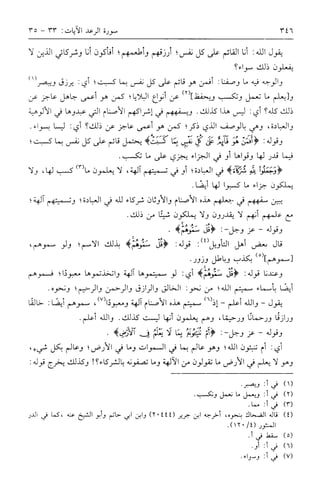 ٣٤٦
سورة الرعد الآيات: ٣٣ - ٣٥
يقول الله: أنا القائم على كل نفس؛ أرزقهم وأطعمهم؛ أفأكون أنا وشركائي الذين لا
يفعلون ذلك سواء؟
والوجه فيه ما وصفنا: أفمن هو قائم على كل نفس بما كسبت؛ أي: يرزق ويبصر(١)
و[يعلم ما تعمل وتكسب ويحفظ](٢) عن أنواع البلايا؛ كمن هو أعمى جاهل عاجز عن
ذلك كله؟ أي: ليس هذا كذلك. ويسفههم في إشراكهم الأصنام التي عبدوها في الألوهية
والعبادة، وهي بالوصف الذي ذكر؛ كمن هو أعمى عاجز عن ذلك؟ أي: ليسا بسواء.
وقوله: ﴿أَفَمَنْ هُوَ قَآئِمٌ عَلَىٰ كُلِّ نَفْسٍ بِمَا كَسَبَتْ﴾ يحتمل قائم على كل نفس بما كسبت؛
فيما قدر لها وقواها أو في الجزاء يجزي على ما تكسب.
﴿وَجَعَلُوا لِلَّهِ شُرَكَآءَ﴾ في العبادة؛ أو في تسميتهم آلهة، لا يعلمون ما(٣) كسب لها، ولا
يملكون جزاء ما كسبوا لها أيضًا.
يبين سفههم في جعلهم هذه الأصنام والأوثان شركاء لله في العبادة؛ وتسميتهم آلهة؛
مع علمهم أنهم لا يقدرون ولا يملكون شيئًا من ذلك.
وقوله - عز وجل-: ﴿قُلْ سَمُّوهُمْ﴾.
قال بعض أهل التأويل(٤): قوله: ﴿قُلْ سَمُّوهُمْ﴾ بذلك الاسم؛ ولو سموهم،
[سموهم](٥) بكذب وباطل وزور.
وعندنا قوله: ﴿قُلْ سَمُّوهُمْ﴾ أي: لو سميتموها آلهة واتخذتموها معبودًا؛ فسموهم
أيضًا بأسماء سميتم الله؛ من نحو: الخالق والرازق والرحمن والرحيم؛ ونحوه.
يقول - والله أعلم - إذ(٦) سميتم هذه الأصنام آلهة ومعبودًا(٧)، سموهم أيضًا: خالقًا
ورازقًا ورحمانًا ورحيمًا، وهم يعلمون أنها ليست كذلك. والله أعلم.
وقوله - عز وجل-: ﴿أَمْ تُنَبِّئُونَهُ بِمَا لَا يَعْلَمُ فِي الْأَرْضِ﴾.
أي: أم تنبئون الله؛ وهو عالم بما في السموات وما في الأرض؛ وعالم بكل شيء،
وهو لا يعلم في الأرض ما تقولون من الآلهة وما تصفونه بالشركاء؟! وكذلك يخرج قوله:
(١) في أ: ويصر.
(٢) في أ: ويعمل ما نعمل ونكسب.
(٣) في أ: مما.
(٤) قاله الضحاك بنحوه، أخرجه ابن جرير (٢٠٤٤٤) وابن أبي حاتم وأبو الشيخ عنه ،كما في الدر
المنثور (١٢٠/٤).
(٥) سقط في أ.
(٦) في أ: أو.
(٧) في أ: وسواء.